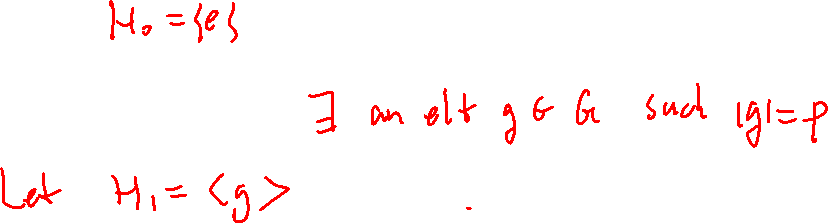 H₀ = {e}
∃ an elt g ∈ G such |g| = p
Let H₁ = <g>